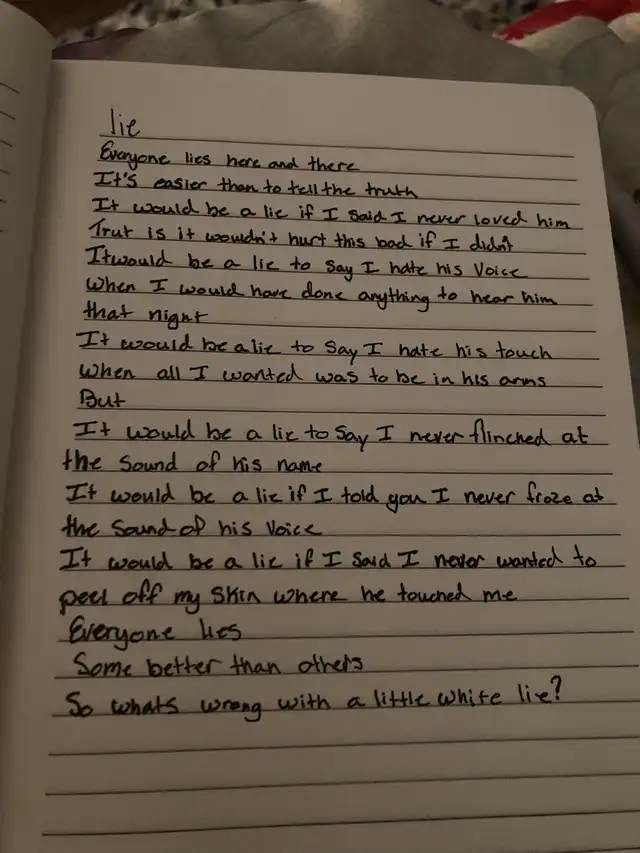 lie
Everyone lies here and there
It's easier than to tell the truth
It would be a lie if I said I never loved him
Trut is it wouldn't hurt this bad if I didn't
It would be a lie to say I hate his voice
When I would have done anything to hear him
that night
It would be a lie to say I hate his touch
When all I wanted was to be in his arms
But
It would be a lie to say I never flinched at
the sound of his name
It would be a lie if I told you I never froze at
the sound of his voice
It would be a lie if I said I never wanted to
peel off my skin where he touched me
Everyone lies
Some better than others
So whats wrong with a little white lie?